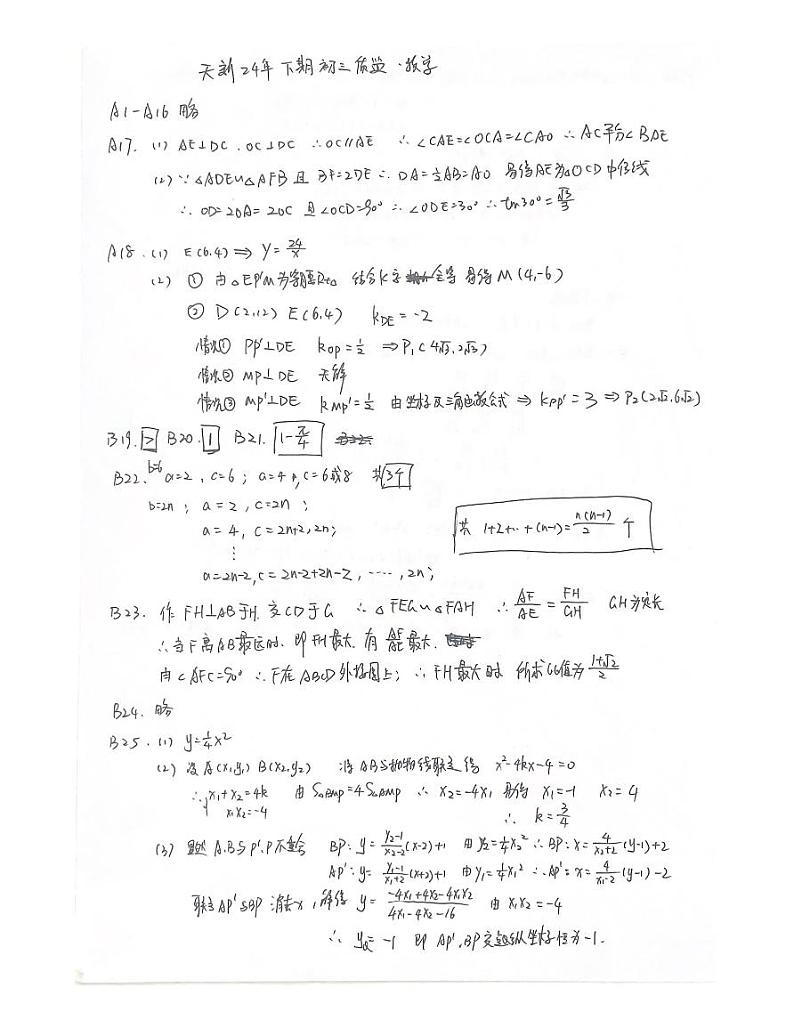 天新24年下期初三质监·数学
A1-A16 略
A17. (1) AE⊥DC . OC⊥DC ∴OC∥AE ∴∠CAE=∠OCA=∠CAO ∴AC平分∠BAE
(2) ∵△ADE∽△AFB 且 BF=2DE ∴ DA=½AB=AO 易得AE为△OCD中位线
∴ OD=2OA=2OC 且∠OCD=90° ∴∠ODE=30° ∴tan30°=√3/3
A18. (1) E(6,4) ⟹ y=24/x
(2) ① 由△EP'M为等腰Rt△ 结合K字全等 易得 M(4,-6)
② D(2,12) E(6,4) k_DE=-2
情况① PP'⊥DE k_OP=½ ⟹P₁(4√3,2√3)
情况② MP⊥DE 无解
情况③ MP'⊥DE k_MP'=½ 由坐标及三角函数公式 ⟹ k_PP'=3 ⟹ P₂(2√2,6√2)
B19. > B20. 1 B21. 1-π/4
B22. b=6 a=2,c=6; a=4,c=6或8 共3个
b=2n; a=2,c=2n;
a=4, c=2n+2,2n;
⋮
a=2n-2,c=2n-2+2n-2,……,2n;
共 1+2+…+(n-1)=n(n-1)/2 个
B23. 作FH⊥AB于H.交CD于G ∴△FEG∽△FAH ∴AF/AE=FH/GH GH为定长
∴当F离AB最远时.即FH最大.有AF/AE最大.
由∠AFC=90° ∴F在ABCD外接圆上; ∴FH最大时 所求比值为(1+√2)/2
B24. 略
B25. (1) y=¼x²
(2) 设A(x₁,y₁) B(x₂,y₂) 将AB与抛物线联立得 x²-4kx-4=0
∴{x₁+x₂=4k x₁x₂=-4 由S△BMP=4S△AMP ∴x₂=-4x₁ 易得 x₁=-1 x₂=4
∴ k=3/4
(3) 显然A.B与P'.P不重合 BP: y=(y₂-1)/(x₂-2)(x-2)+1 由y₂=¼x₂² ∴BP: x=4/(x₂+2)(y-1)+2
AP': y=(y₁-1)/(x₁+2)(x+2)+1 由y₁=¼x₁² ∴AP': x=4/(x₁-2)(y-1)-2
联立AP'与BP 消去x,解得 y=(-4x₁+4x₂-4x₁x₂)/(4x₁-4x₂-16) 由x₁x₂=-4
∴ y=-1 即 AP',BP交点纵坐标恒为-1.